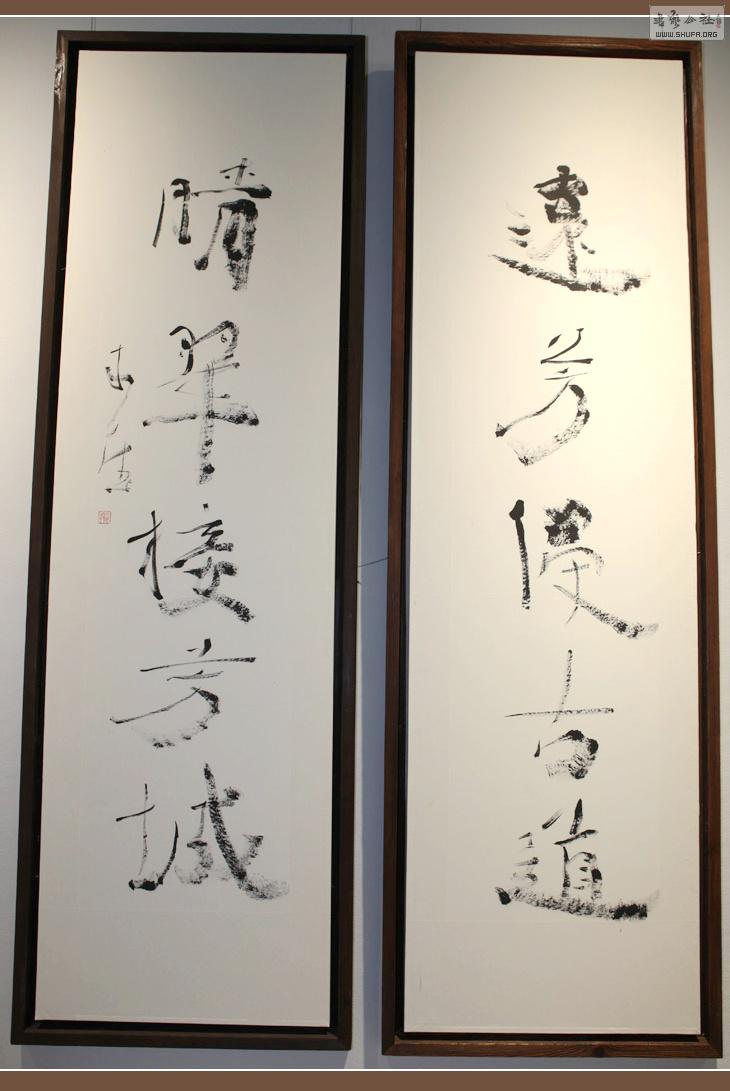 書藝公社
WWW.SHUFA.ORG
遠芳侵古道
晴翠接荒城